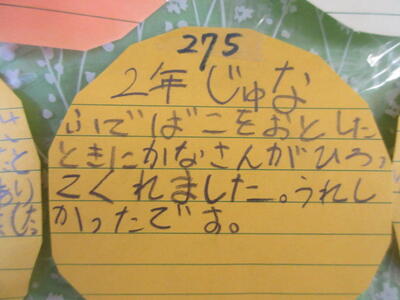 275
2年じゅな
ふでばこをおとした
ときにかなさんがひろっ
てくれました。うれし
かったです。